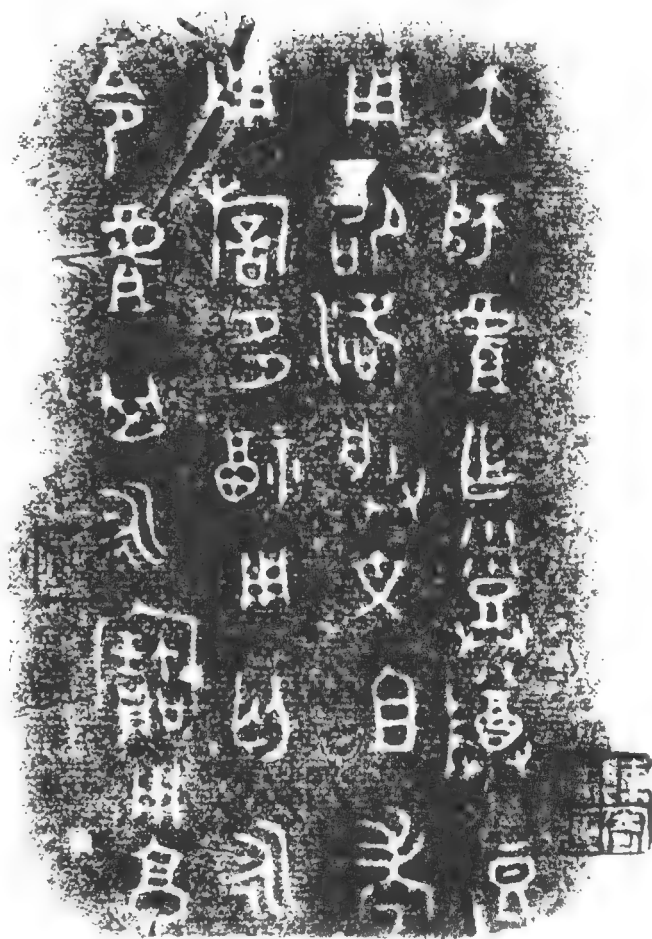 大師虘乍烝尊豆
用卲洛朕文且考
用旂多福用匄永
令虘其永寶用享